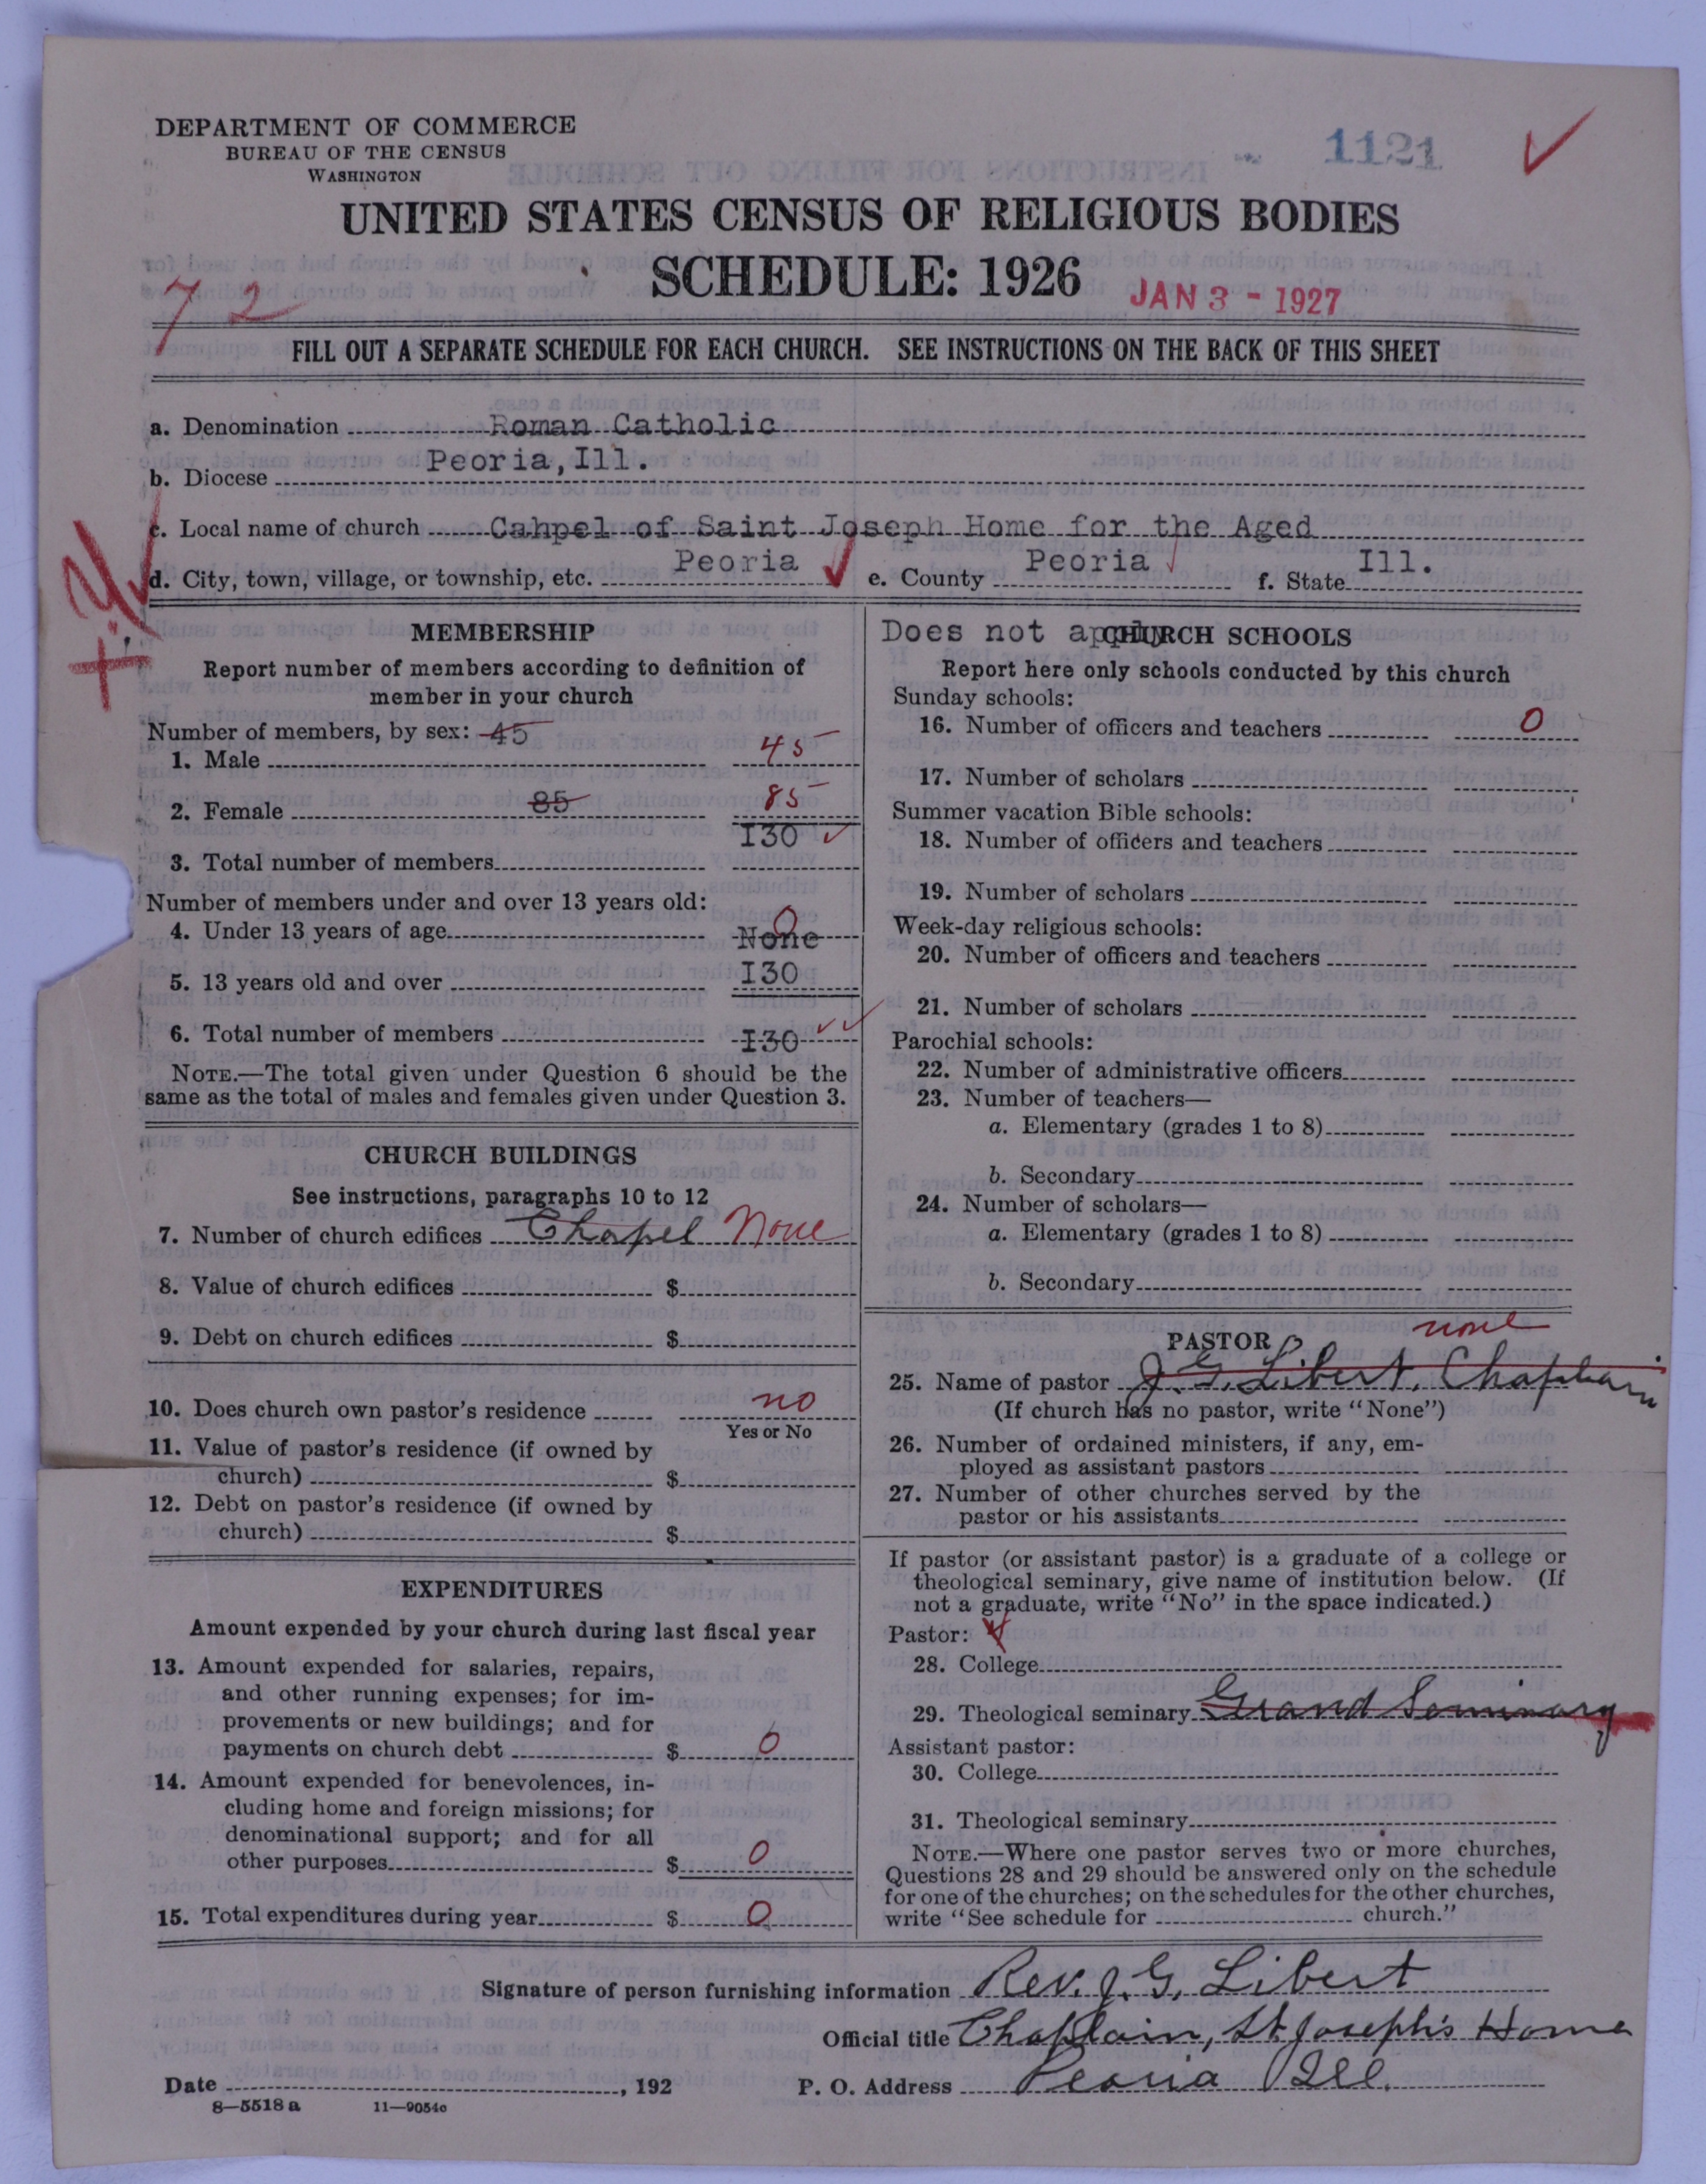 DEPARTMENT OF COMMERCE
BUREAU OF THE CENSUS
WASHINGTON
1121
UNITED STATES CENSUS OF RELIGIOUS BODIES
SCHEDULE: 1926
JAN 3 - 1927
72
FILL OUT A SEPARATE SCHEDULE FOR EACH CHURCH. SEE INSTRUCTIONS ON THE BACK OF THIS SHEET
a. Denomination Roman Catholic
b. Diocese Peoria, Ill.
c. Local name of church Cahpel of Saint Joseph Home for the Aged
d. City, town, village, or township, etc. Peoria e. County Peoria f. State Ill.
MEMBERSHIP
Report number of members according to definition of
member in your church
Number of members, by sex: 45
1. Male 45
2. Female 85 85
I30
3. Total number of members
Number of members under and over 13 years old:
4. Under 13 years of age None 0
5. 13 years old and over I30
6. Total number of members I30
NOTE.—The total given under Question 6 should be the
same as the total of males and females given under Question 3.
CHURCH BUILDINGS
See instructions, paragraphs 10 to 12
7. Number of church edifices Chapel None
8. Value of church edifices $
9. Debt on church edifices $
10. Does church own pastor's residence no
Yes or No
11. Value of pastor's residence (if owned by
church) $
12. Debt on pastor's residence (if owned by
church) $
EXPENDITURES
Amount expended by your church during last fiscal year
13. Amount expended for salaries, repairs,
and other running expenses; for im-
provements or new buildings; and for
payments on church debt $ 0
14. Amount expended for benevolences, in-
cluding home and foreign missions; for
denominational support; and for all
other purposes $ 0
15. Total expenditures during year $ 0
Does not apply CHURCH SCHOOLS
Report here only schools conducted by this church
Sunday schools:
16. Number of officers and teachers 0
17. Number of scholars
Summer vacation Bible schools:
18. Number of officers and teachers
19. Number of scholars
Week-day religious schools:
20. Number of officers and teachers
21. Number of scholars
Parochial schools:
22. Number of administrative officers
23. Number of teachers—
a. Elementary (grades 1 to 8)
b. Secondary
24. Number of scholars—
a. Elementary (grades 1 to 8)
b. Secondary
PASTOR none
25. Name of pastor J. G. Libert, Chaplain
(If church has no pastor, write "None")
26. Number of ordained ministers, if any, em-
ployed as assistant pastors
27. Number of other churches served by the
pastor or his assistants
If pastor (or assistant pastor) is a graduate of a college or
theological seminary, give name of institution below. (If
not a graduate, write "No" in the space indicated.)
Pastor:
28. College
29. Theological seminary Grand Seminary
Assistant pastor:
30. College
31. Theological seminary
NOTE.—Where one pastor serves two or more churches,
Questions 28 and 29 should be answered only on the schedule
for one of the churches; on the schedules for the other churches,
write "See schedule for church."
Signature of person furnishing information Rev. J. G. Libert
Official title Chaplain, St. Joseph's Home
Date , 192 P. O. Address Peoria Ill.
8—5518 a 11—9054c